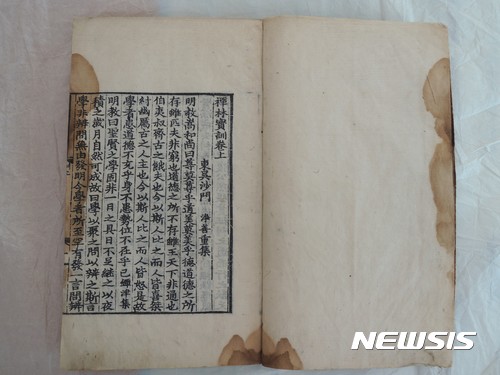 禪林寶訓卷上
東吳沙門 淨善重集
明教嵩和尚曰尊莫尊乎道美莫美乎德道德之所
存雖匹夫非窮也道德之所不存雖王天下非通也
伯夷叔齊古之餓夫也今以斯人比之而人皆喜桀
紂幽厲古之人主也今以斯人比之而人皆怒是故
學者患道德不充乎身不患勢位不在乎己 鐔津集
明教曰聖賢之學固非一日之具日不足繼之以夜
積之歲月自然可成故曰學以聚之問以辨之斯言
學非辨問無由發明今學者所至罕有發一言問辨
NEWSIS